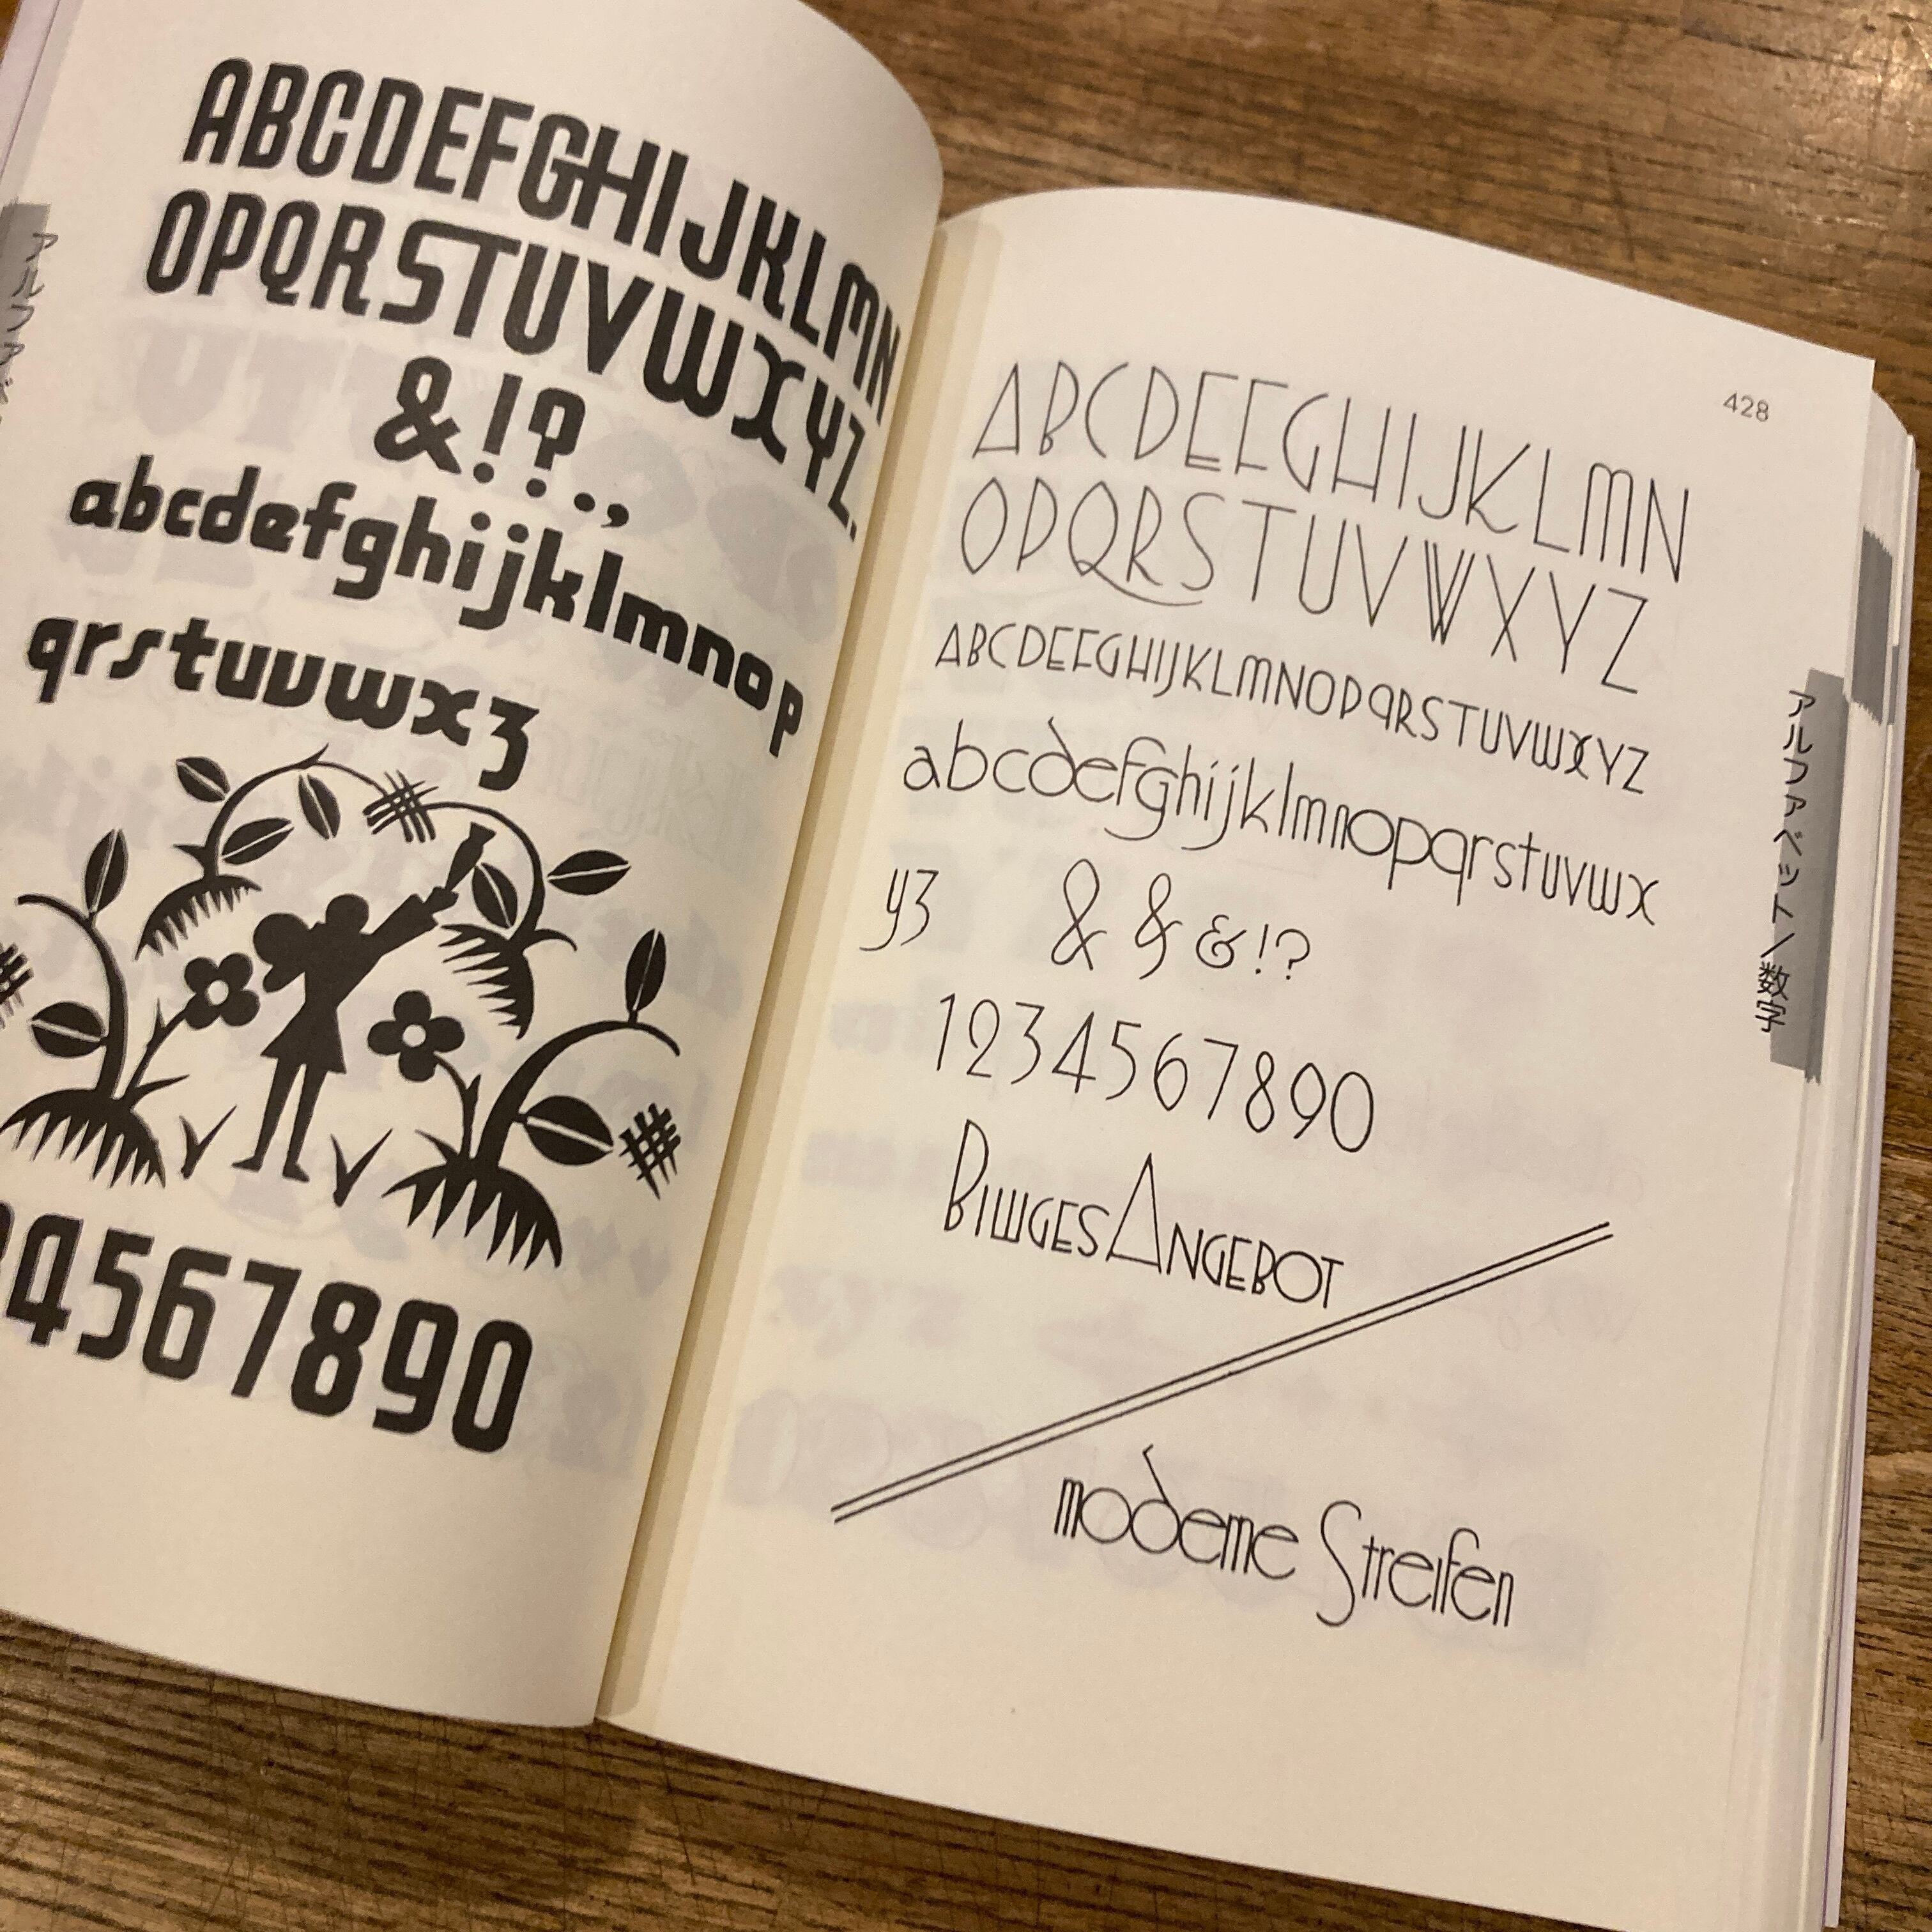 ABCDEFGHIJKLMN
OPQRSTUVWXYZ.
&!?.,
abcdefghijklmnop
qrstuvwxz
4567890
428
ABCDEFGHIJKLMN
OPQRSTUVWXYZ
ABCDEFGHIJKLMNOPQRSTUVWXYZ
abcdefghijklmnopqrstuvwx
yz & & &!?
1234567890
BIWGES ANGEBOT
moderne Streifen
アルファベット/数字